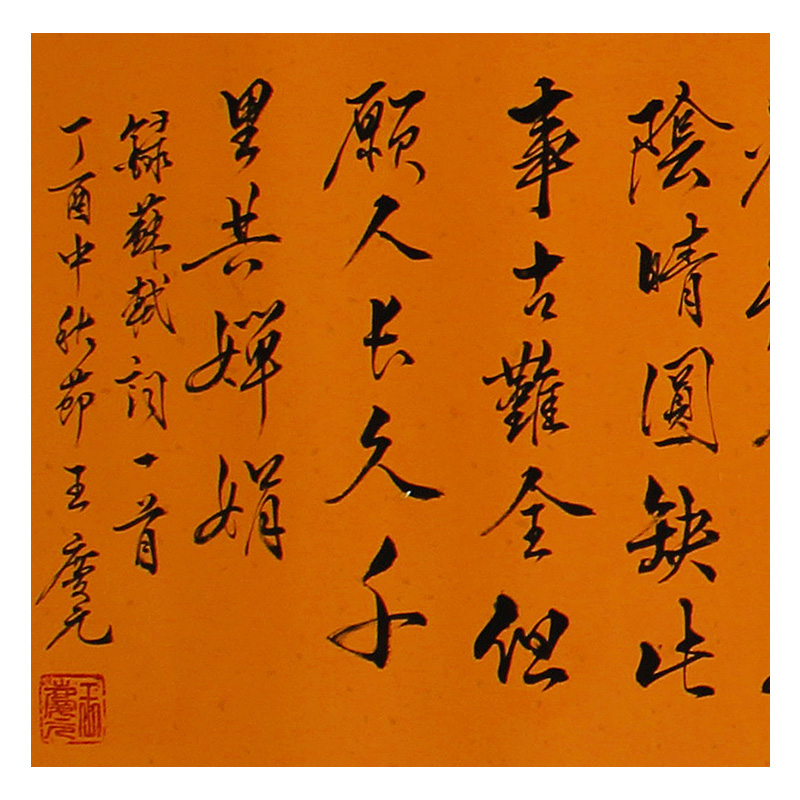 陰晴圓缺此
事古難全但
願人長久千
里共嬋娟
錄蘇軾詞一首
丁酉中秋節王慶元
王慶元